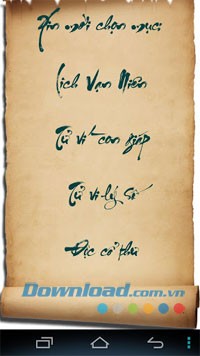 Xin mời chọn mục:
Lịch Vạn Niên
Tử vi 12 con giáp
Tử vi-lý số
Độc cô thủ
Download.com.vn